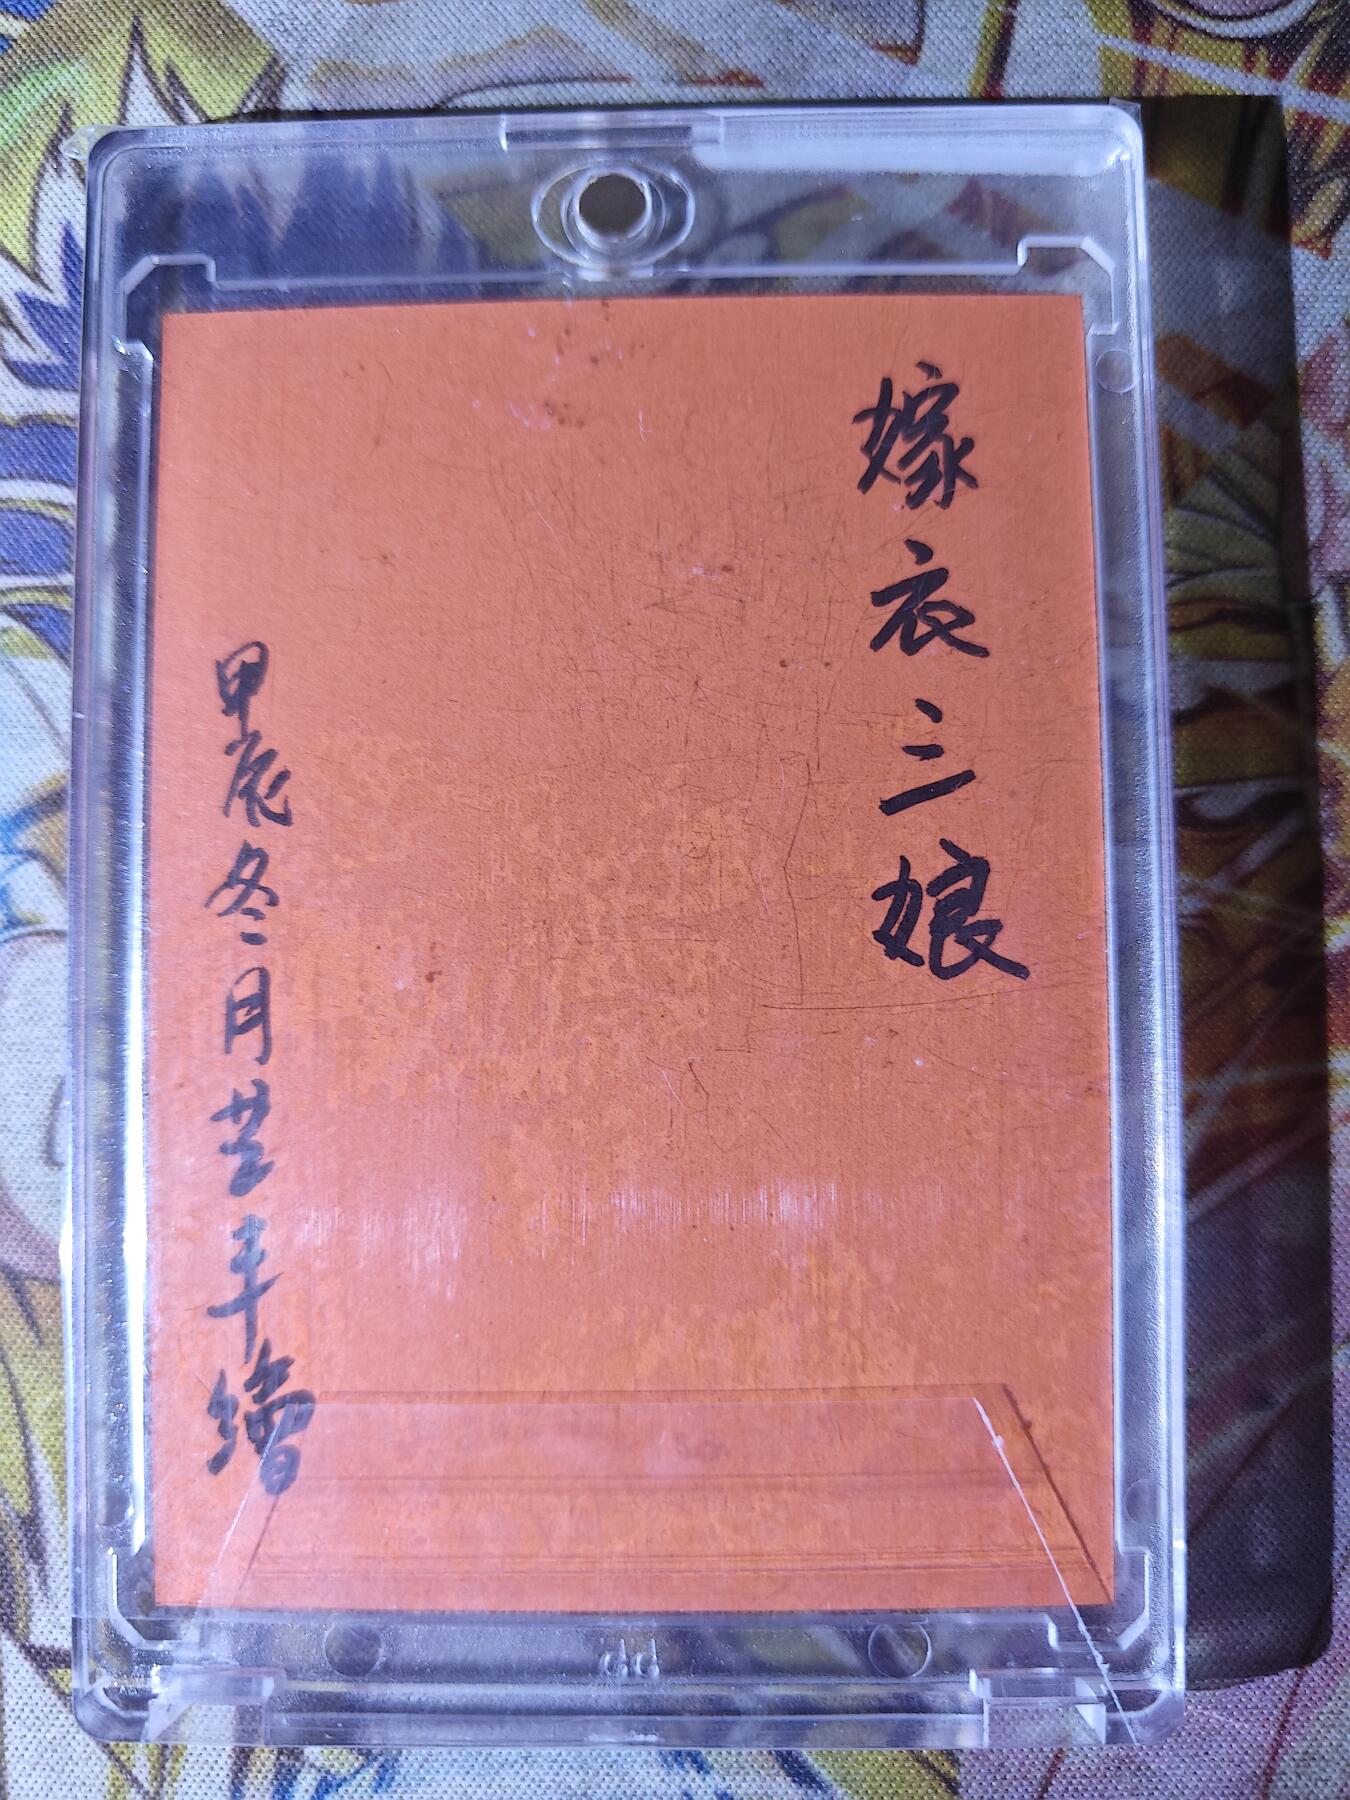 嫁衣三娘
甲辰冬月芸丰繪